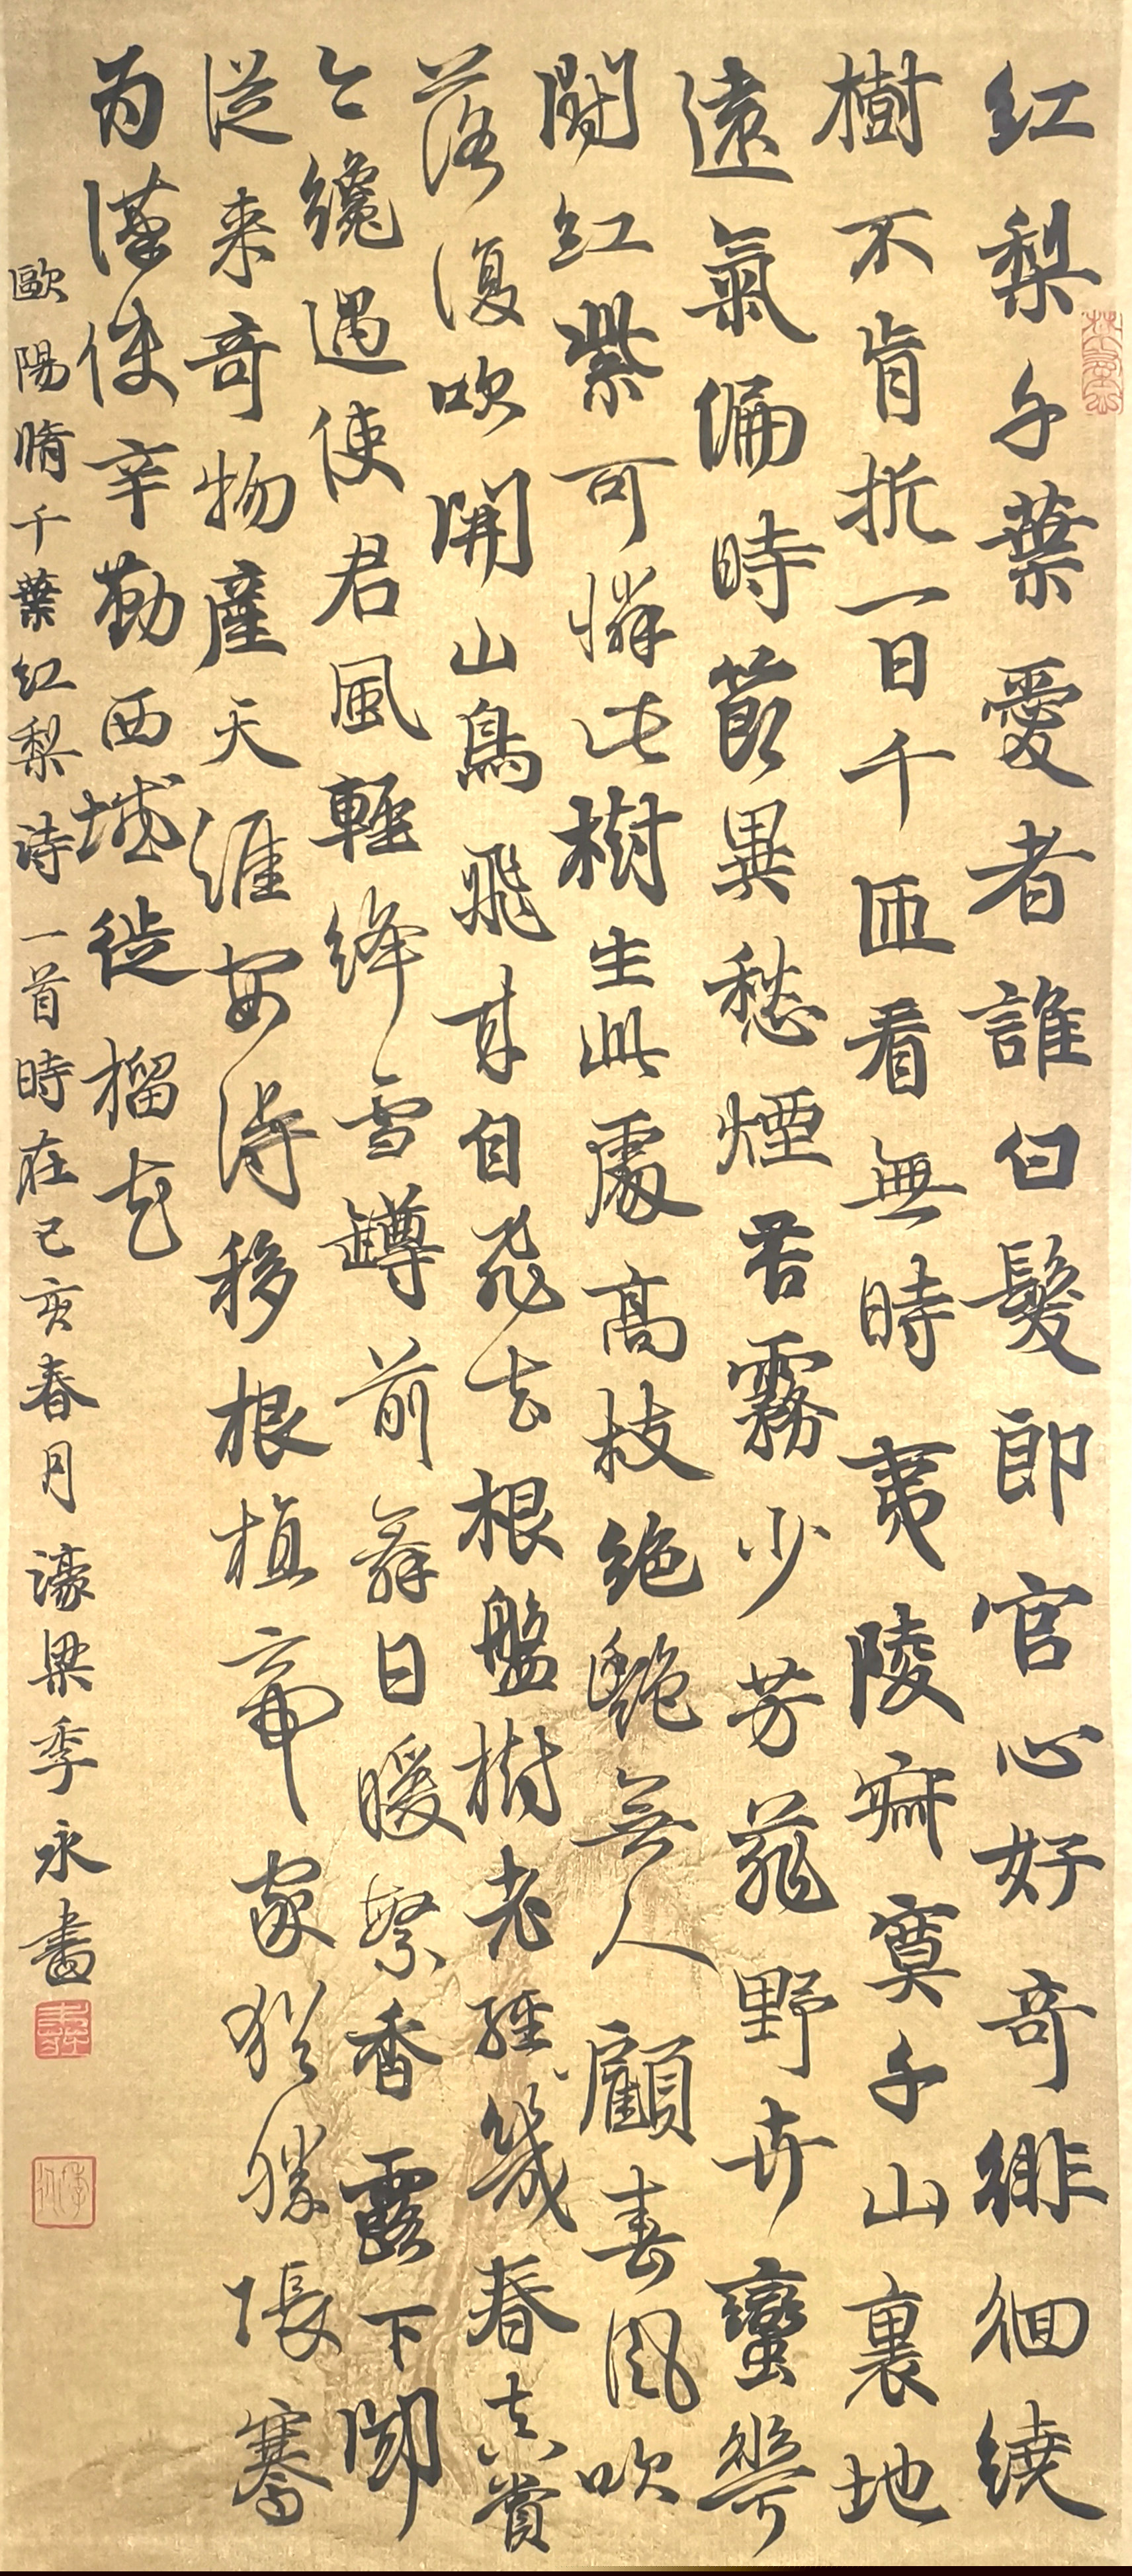 红梨千葉愛者誰白髮郎官心好奇徘徊繞
樹不肯折一日千匝看無時夷陵寂寞千山裏地
遠氣偏時節異愁煙苦霧少芳菲野卉蠻華
闘红紫可憐此樹生此處高枝絶艷無人顧春風吹
落復吹開山鳥飛来自飛去根盤樹老經幾春真賞
今纔遇使君風輕絳雪罇前舞日暖繁香露下聞
從来奇物産天涯安得移根植帝家猶勝張騫
为漢使辛勤西域徙榴花
歐陽脩千葉红梨诗一首時在己亥春月濠梁季永書